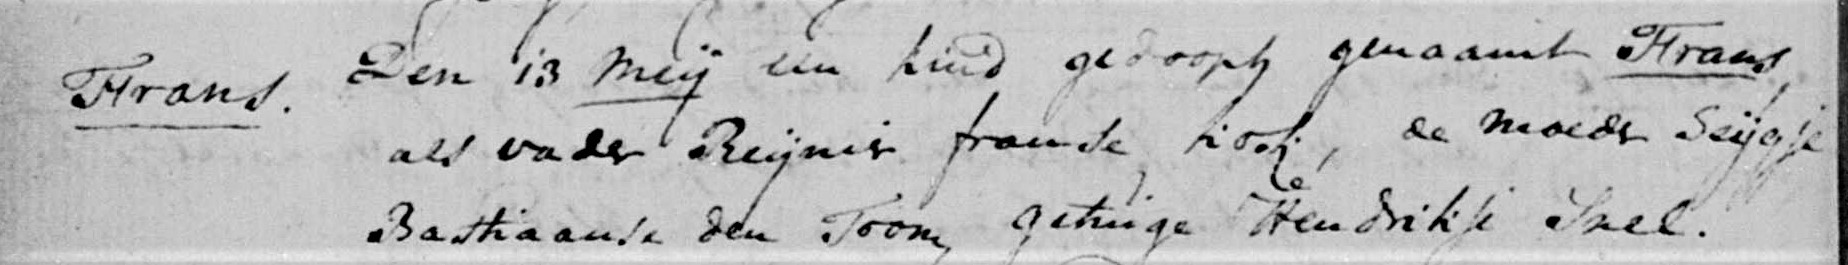 Frans. Den 13 Meij een kind gedoopt genaamt Frans,
als vader Reijnier franse kok, de moeder Seijgje
Bastiaanse den Toom, getuige Hendrikje Snel.